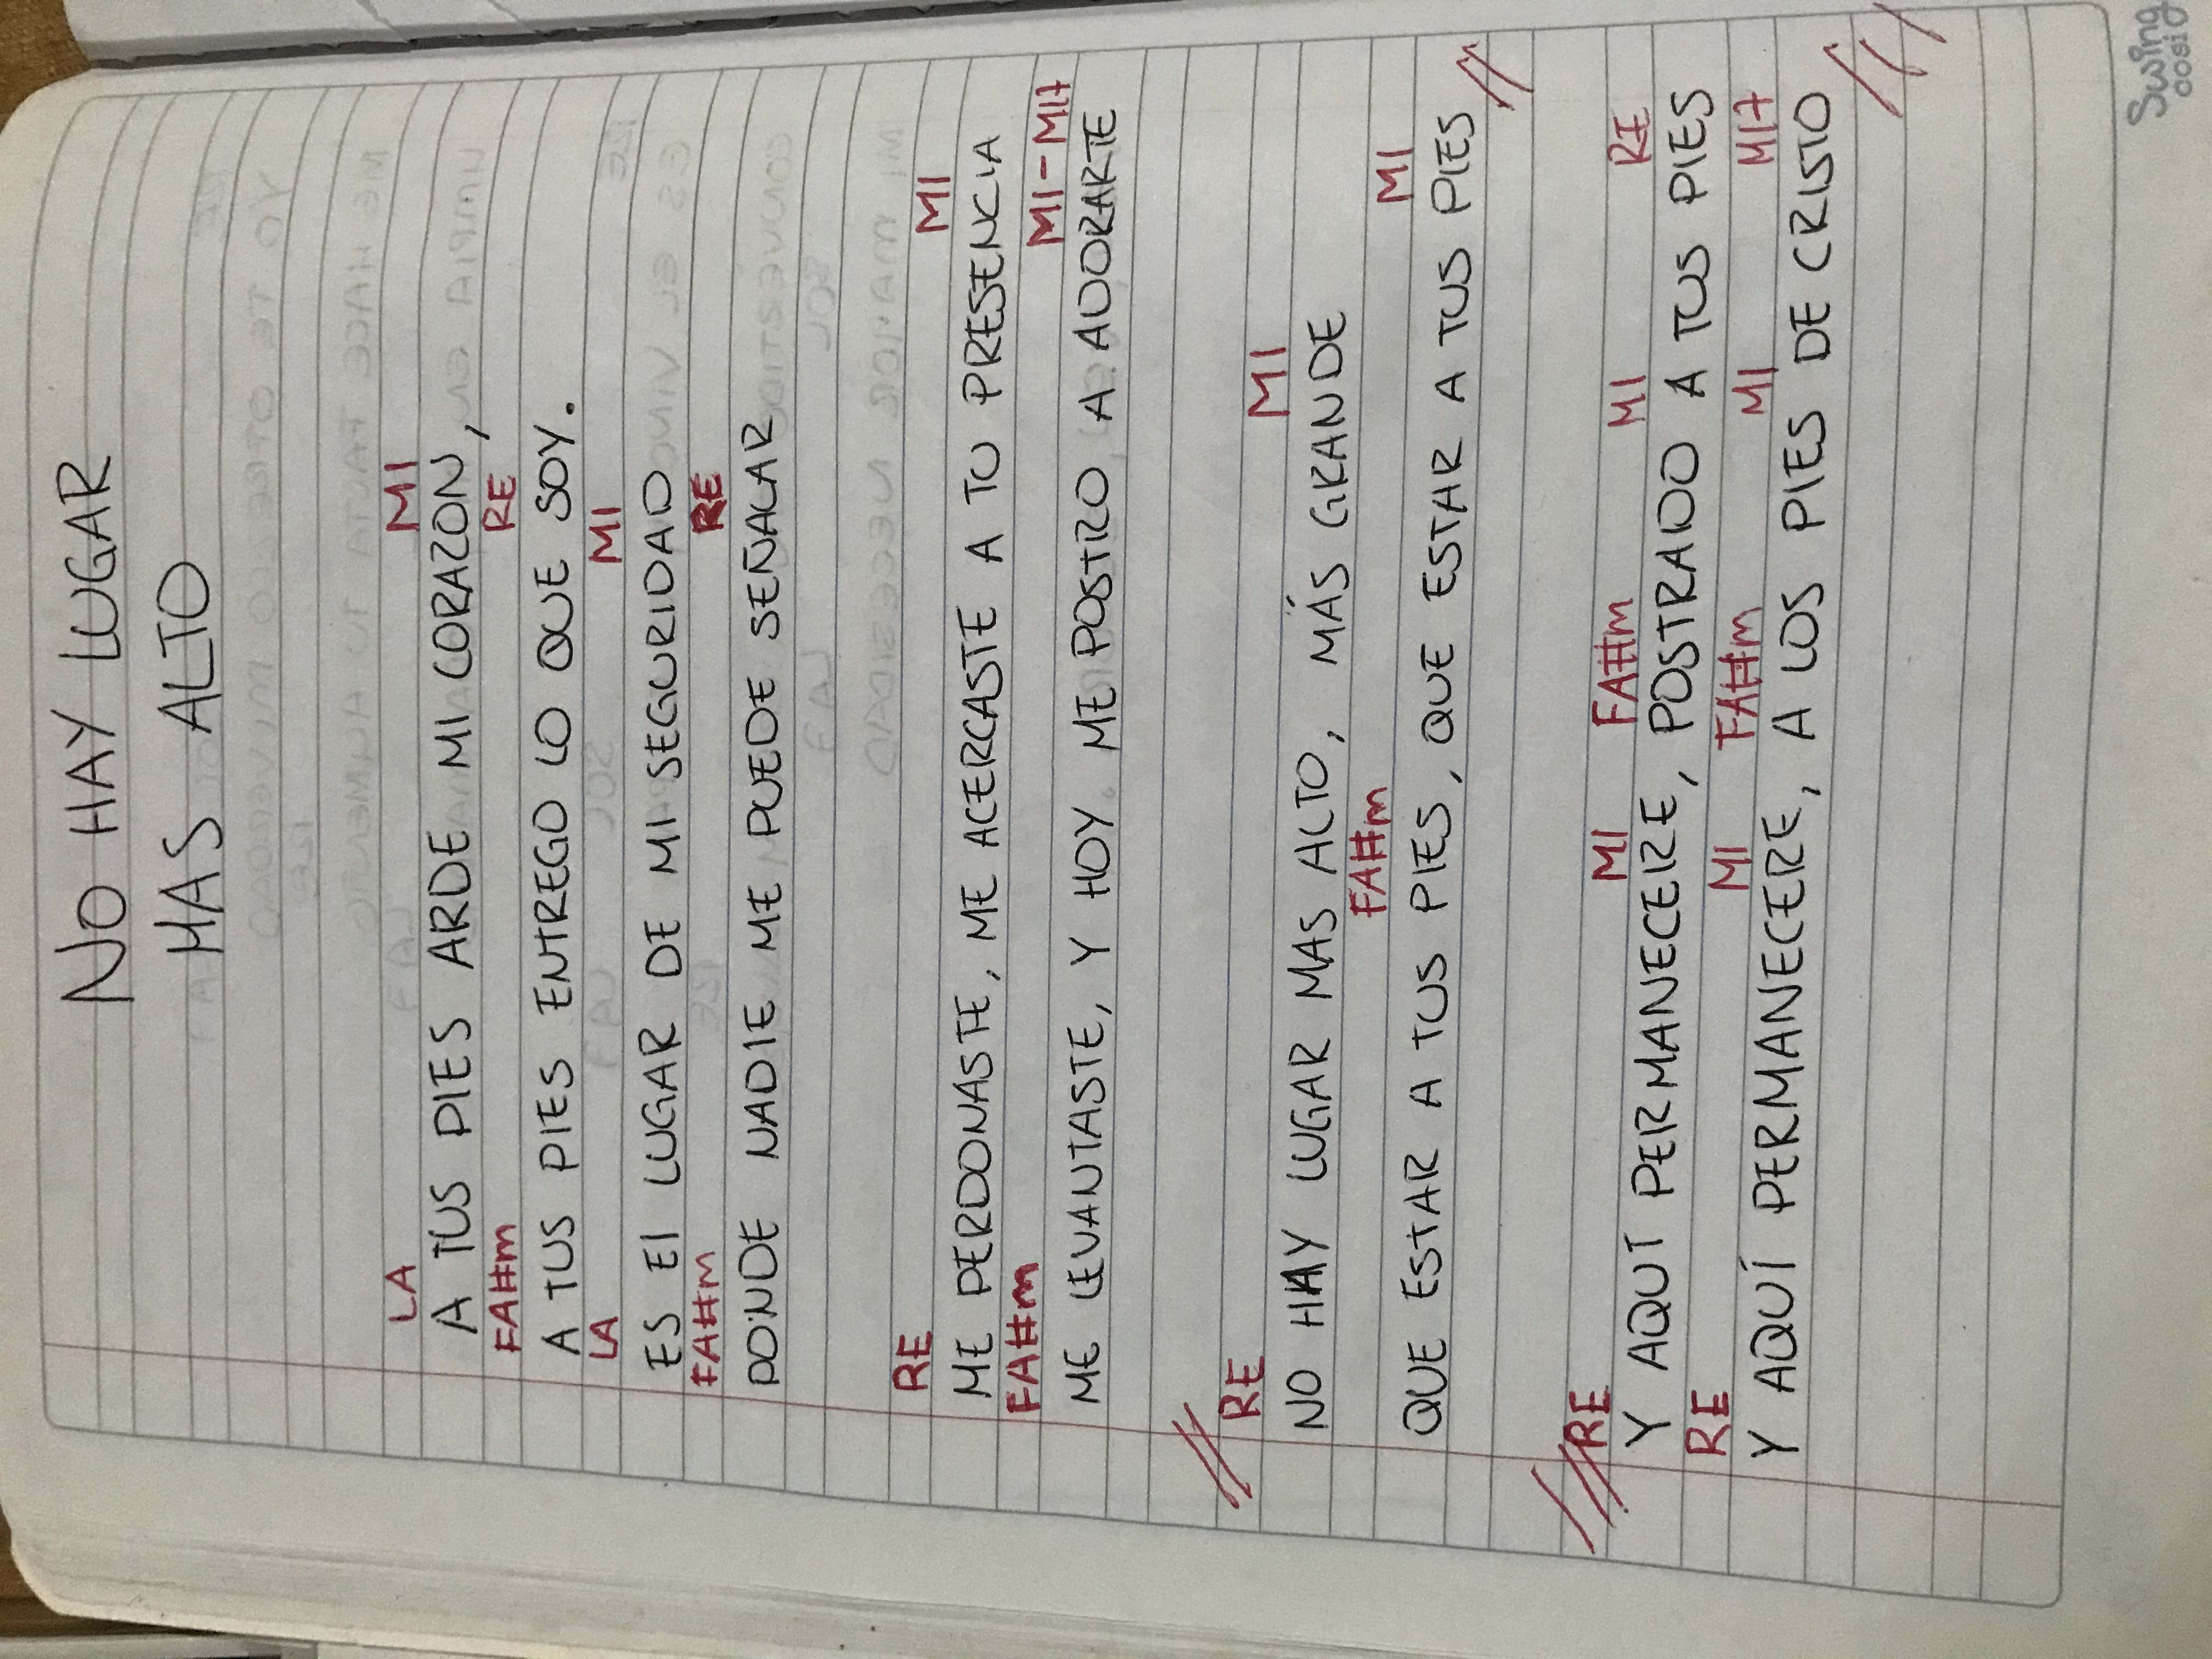 NO HAY LUGAR
MAS ALTO
LA MI
A TUS PIES ARDE MI CORAZON,
FA#m RE
A TUS PIES ENTREGO LO QUE SOY.
LA MI
ES El LUGAR DE MI SEGURIDAD
FA#m RE
DONDE NADIE ME PUEDE SEÑALAR
RE MI
ME PERDONASTE, ME ACERCASTE A TU PRESENCIA
FA#m MI-MI7
ME LEVANTASTE, Y HOY ME POSTRO A ADORARTE
// RE MI
NO HAY LUGAR MAS ALTO, MÁS GRANDE
FA#m MI
QUE ESTAR A TUS PIES, QUE ESTAR A TUS PIES //
/// RE MI FA#m MI RE
Y AQUÍ PERMANECERE, POSTRADO A TUS PIES
RE MI FA#m MI MI7
Y AQUÍ PERMANECERE, A LOS PIES DE CRISTO ///
Swing
cosi